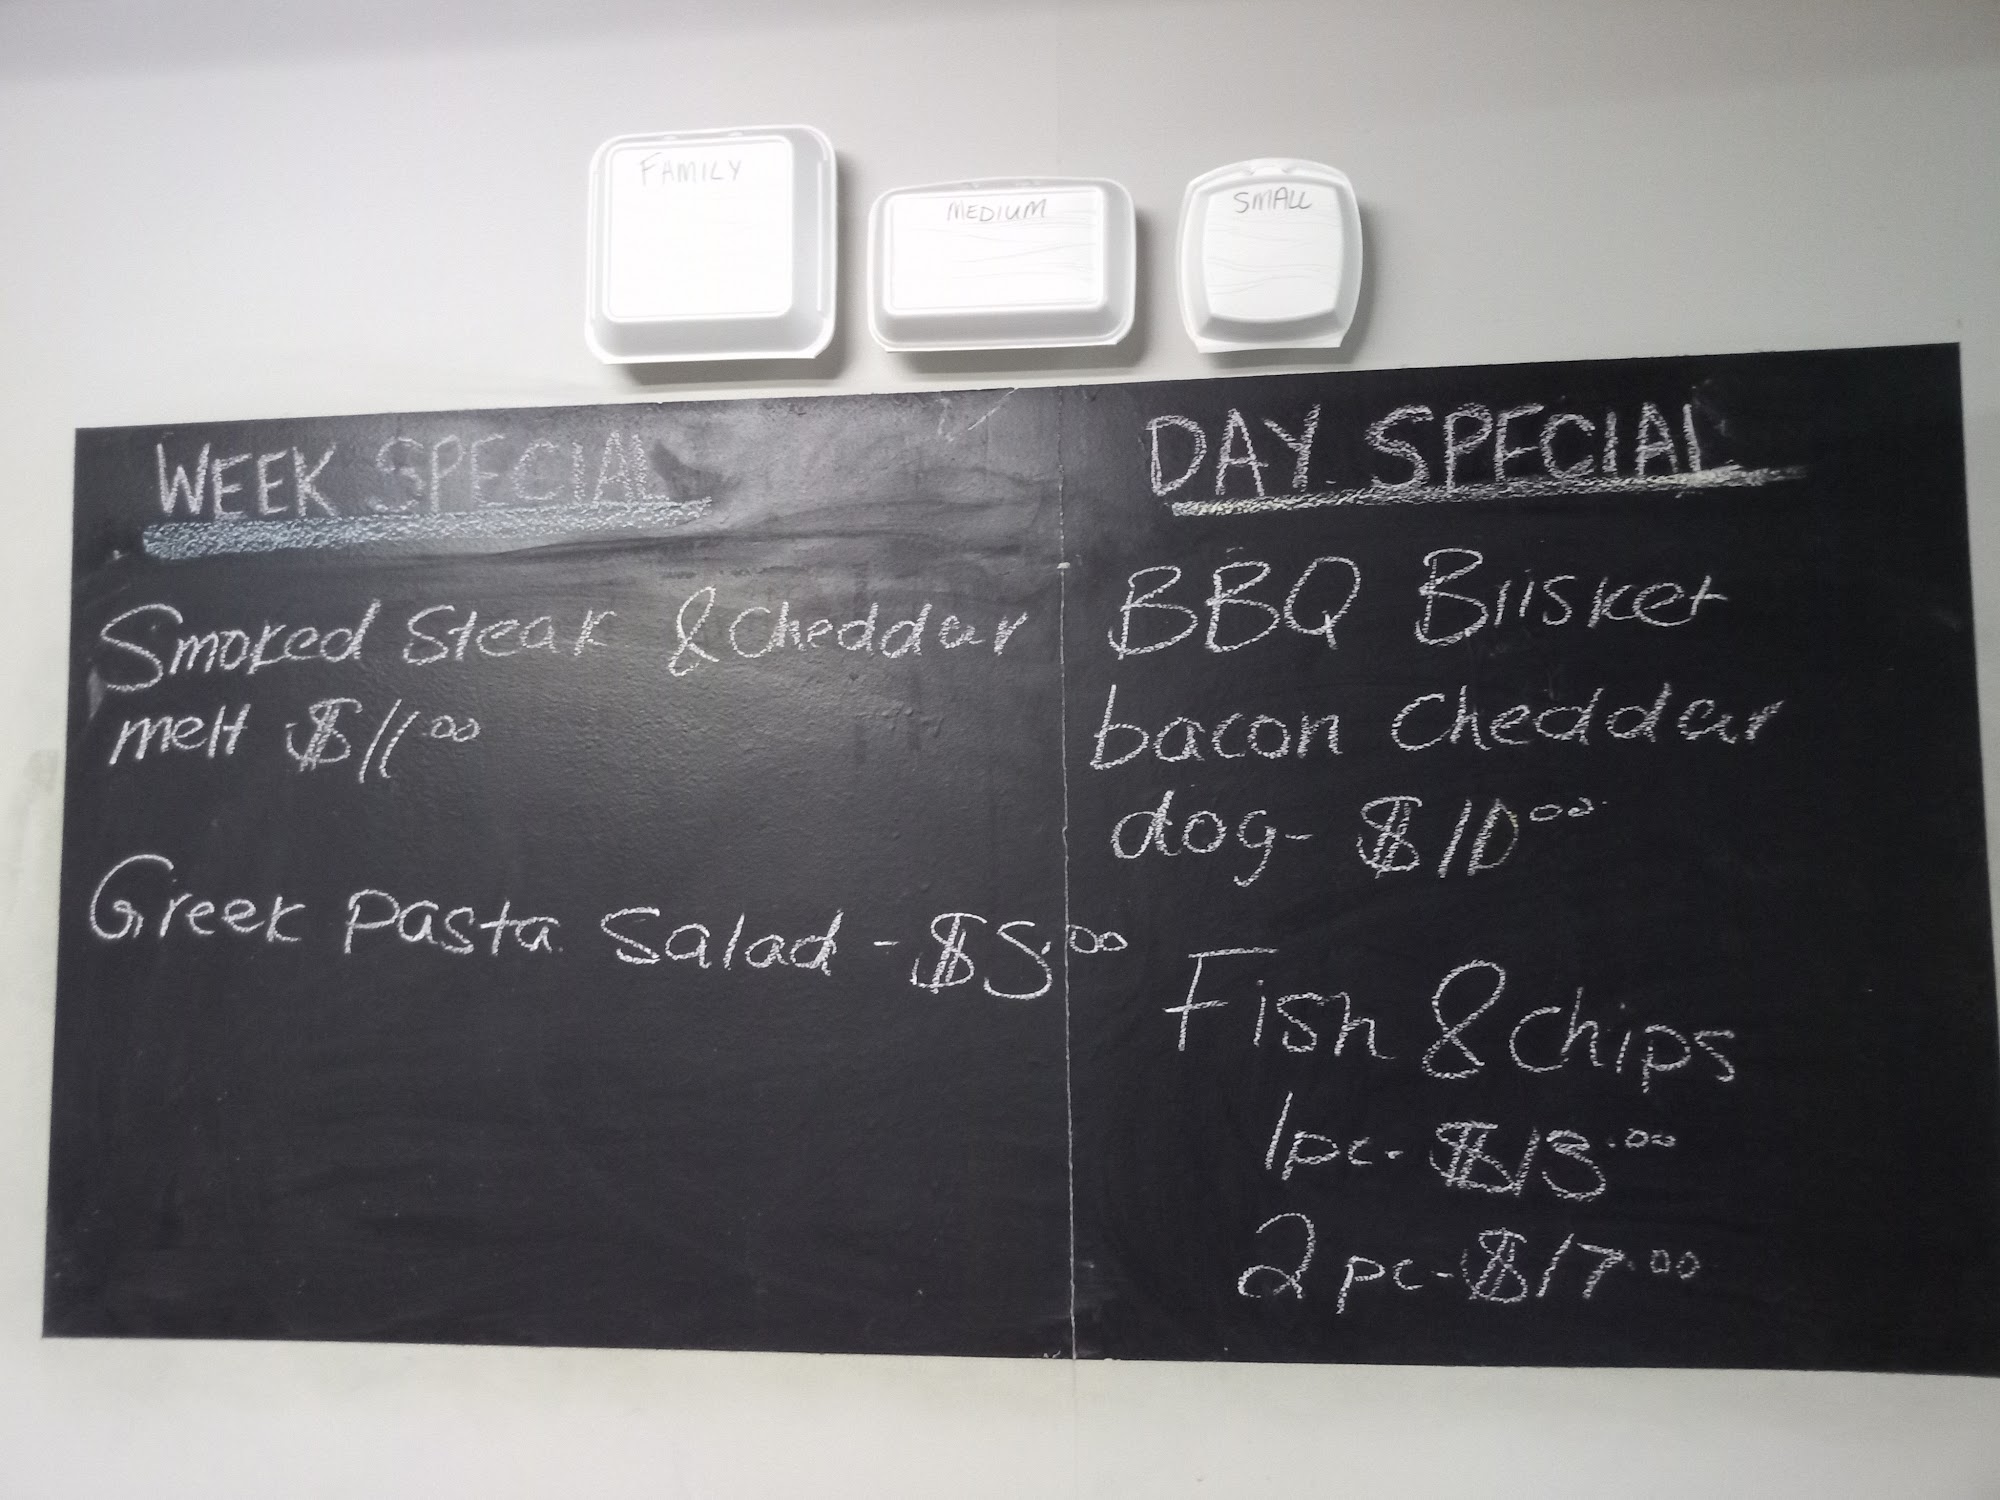 FAMILY
MEDIUM
SMALL
WEEK SPECIAL
Smoked Steak & Cheddar
melt $11.00
Greek Pasta Salad - $5.00
DAY SPECIAL
BBQ Brisket
bacon Cheddar
dog- $10.00
Fish & Chips
1pc- $13.00
2pc- $17.00